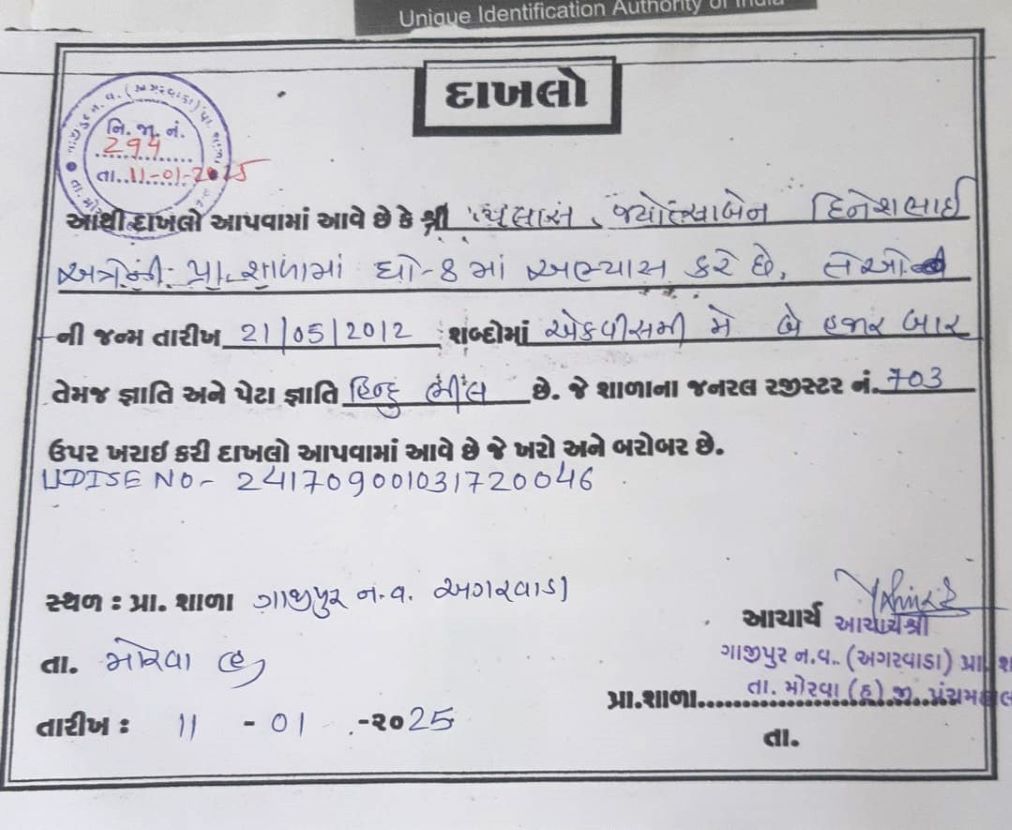 Unique Identification Authority of India
દાખલો
નિ. જા. નં.
294
તા..11-01-2025
આથી દાખલો આપવામાં આવે છે કે શ્રી જ્યોત્સાબેન દિનેશભાઈ
અત્રેની પ્રા. શાળામાં ધો-8માં અભ્યાસ કરે છે. તેઓ
ની જન્મ તારીખ 21/05/2012 શબ્દોમાં એકવીસમી મે બે હજાર બાર
તેમજ જ્ઞાતિ અને પેટા જ્ઞાતિ હિન્દુ ભીલ છે. જે શાળાના જનરલ રજીસ્ટર નં. 703
ઉપર ખરાઈ કરી દાખલો આપવામાં આવે છે જે ખરો અને બરોબર છે.
UDISE NO- 241709001031720046
સ્થળ : પ્રા. શાળા ગાજીપુર ન.વ. અગરવાડા
આચાર્ય આચાર્યશ્રી
તા. મોરવા (હ)
ગાજીપુર ન.વ. (અગરવાડા) પ્રા. શા
પ્રા.શાળા તા. મોરવા (હ) જી. પંચમહાલ
તારીખ : 11 - 01 - ૨૦25
તા.